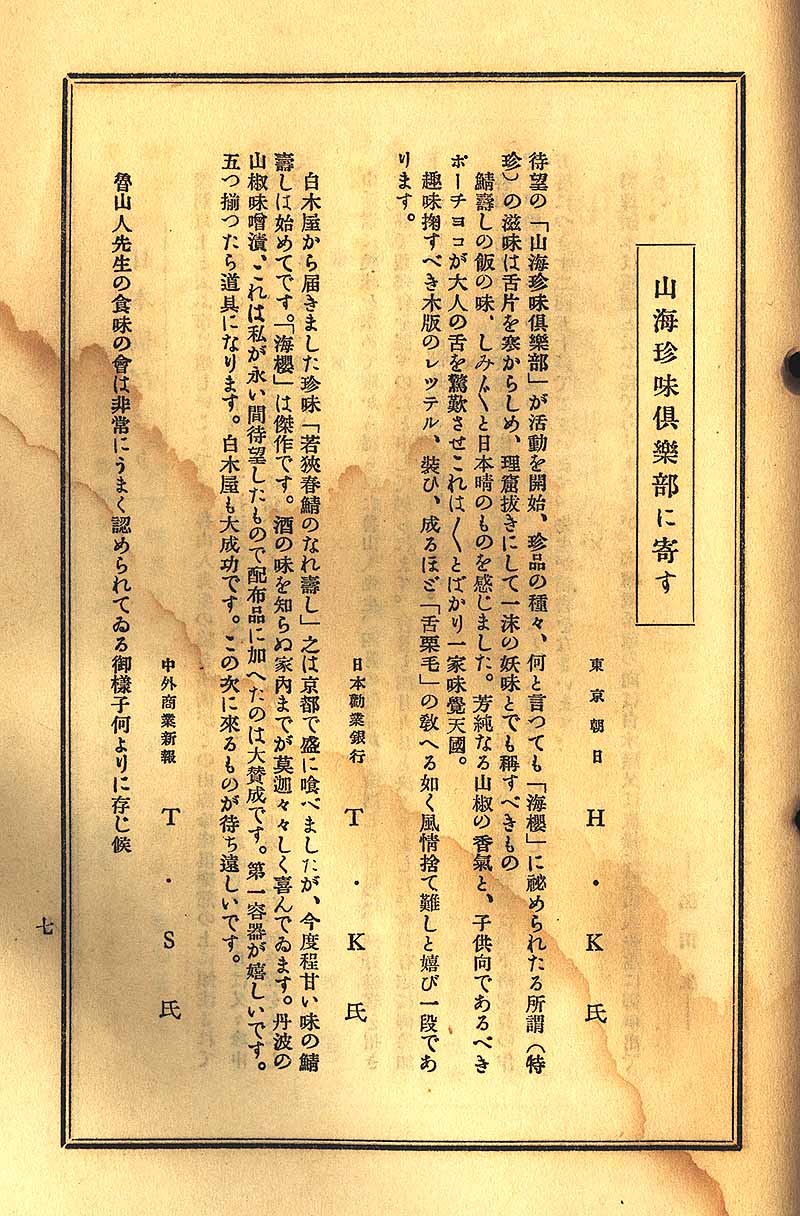 山海珍味倶樂部に寄す
東京朝日　H・K氏
待望の「山海珍味倶樂部」が活動を開始、珍品の種々、何と言つても「海櫻」に祕められたる所謂（特
珍）の滋味は舌片を寒からしめ、理窟抜きにして一沫の妖味とでも稱すべきもの
鯖壽しの飯の味、しみ〴〵と日本晴のものを感じました。芳純なる山椒の香氣と、子供向であるべき
ポーチョコが大人の舌を驚歎させこれは〳〵とばかり一家味覺天國。
趣味掬すべき木版のレッテル、裝ひ、成るほど「舌栗毛」の敎へる如く風情捨て難しと嬉び一段であ
ります。
日本勸業銀行　T・K氏
白木屋から届きました珍味「若狹春鯖のなれ壽し」之は京都で盛に喰べましたが、今度程甘い味の鯖
壽しは始めてです。「海櫻」は傑作です。酒の味を知らぬ家內までが莫迦々々しく喜んでゐます。丹波の
山椒味噌漬、これは私が永い間待望したもので配布品に加へたのは大賛成です。第一容器が嬉しいです。
五つ揃つたら道具になります。白木屋も大成功です。この次に來るものが待ち遠しいです。
中外商業新報　T・S氏
魯山人先生の食味の會は非常にうまく認められてゐる御樣子何よりに存じ候
七